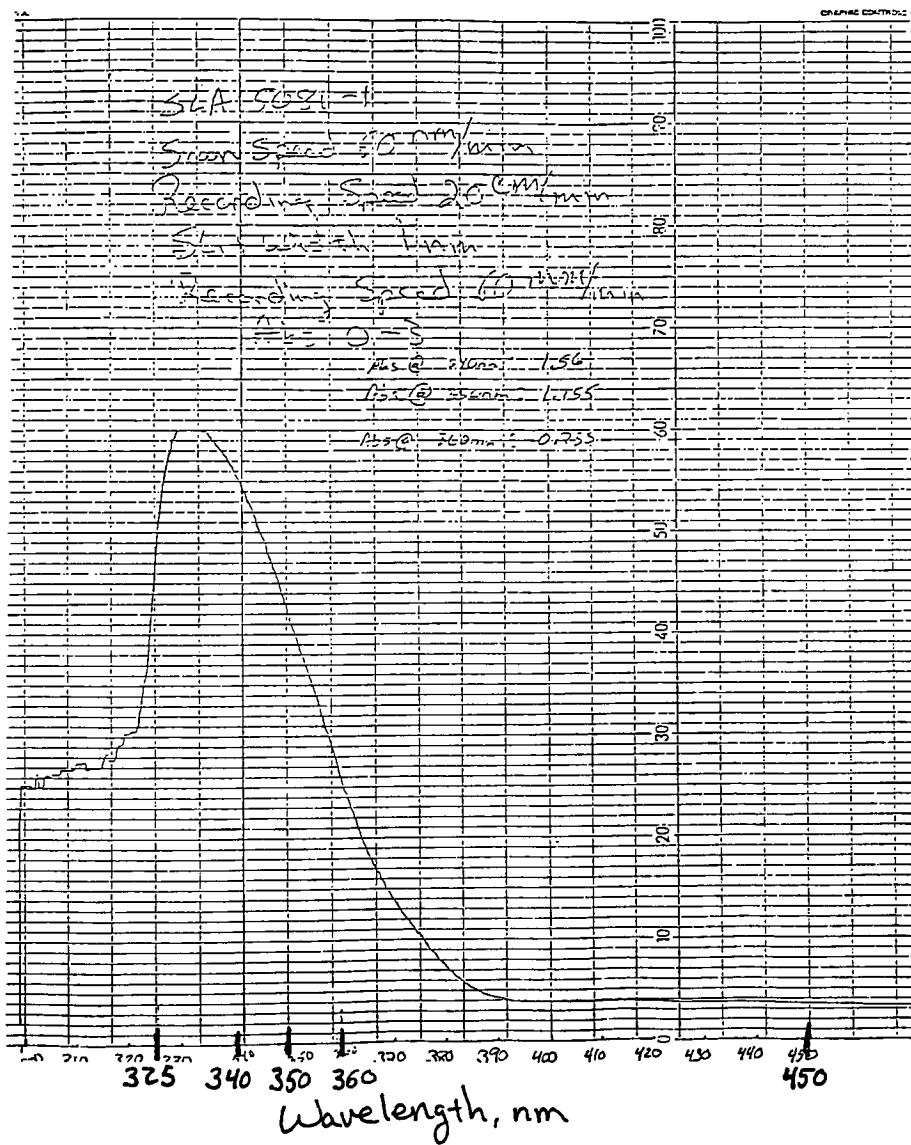 GRAPHIC CONTROLS
100
SLA 5081-1
90
Scan Speed nm/min
Recording Speed 20 cm/min
80
Slit width 1 nm
Recording Speed 60 /min
70
0-3
Abs @ 340nm: 1.56
Abs @ 350nm: 1.155
Abs @ 360nm: 0.755
60
50
40
30
20
10
0
310 320 330 370 380 390 400 410 420 430 440 450
325 340 350 360 450
Wavelength, nm